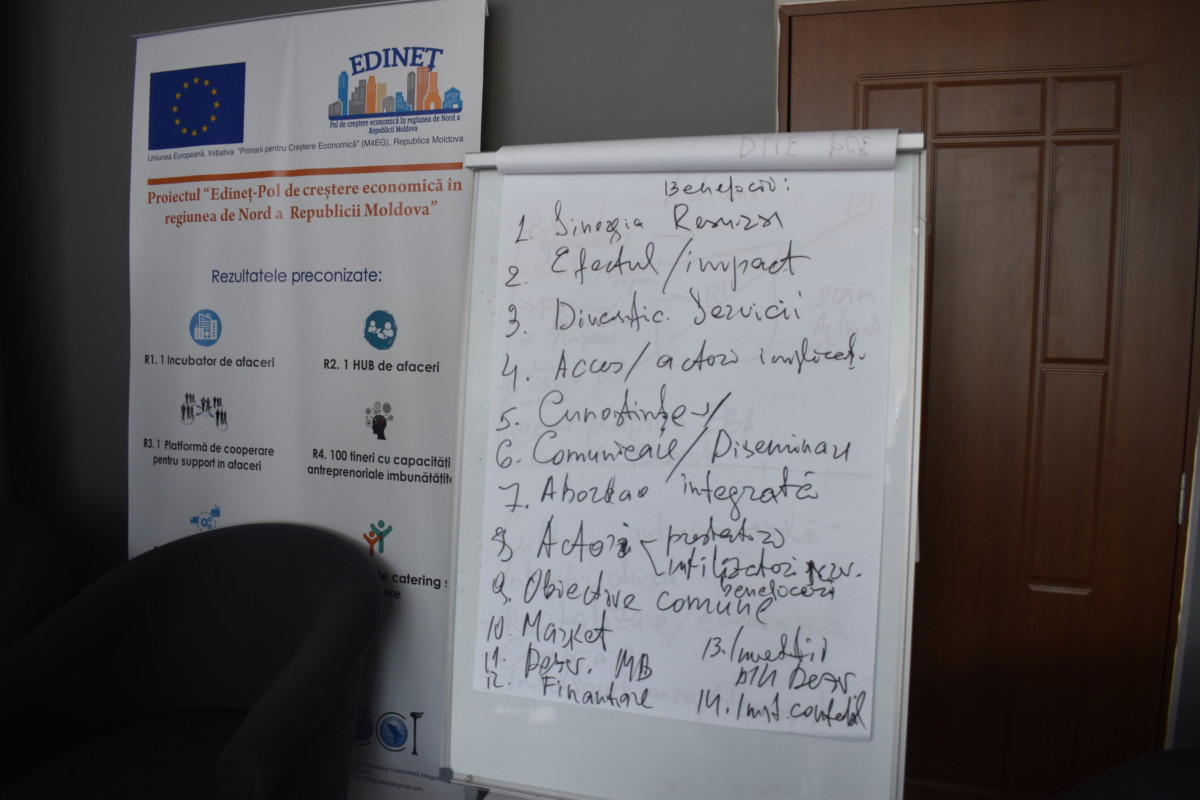 EDINEȚ
Pol de creștere economică în regiunea de Nord a
Republicii Moldova
Uniunea Europeană, Inițiativa "Primarii pentru Creștere Economică" (M4EG), Republica Moldova
Proiectul "Edineț-Pol de creștere economică în
regiunea de Nord a Republicii Moldova"
Rezultatele preconizate:
R1. 1 Incubator de afaceri
R2. 1 HUB de afaceri
R3. 1 Platformă de cooperare
pentru support in afaceri
R4. 100 tineri cu capacități
antreprenoriale imbunătățite
de catering
Beneficii:
1. Sinergia Resurse
2. Efectul/impact
3. Diversific. Servicii
4. Acces/actori implicaț.
5. Cunoștințe/
6. Comunicare/Diseminare
7. Abordare integrată
8 Actori - prestatori
utilizatori serv.
beneficiari
9. Obiective comune
10. Market
11. Dezv. MB
12. Finanțare
13. Investiții
Dezv.
14.